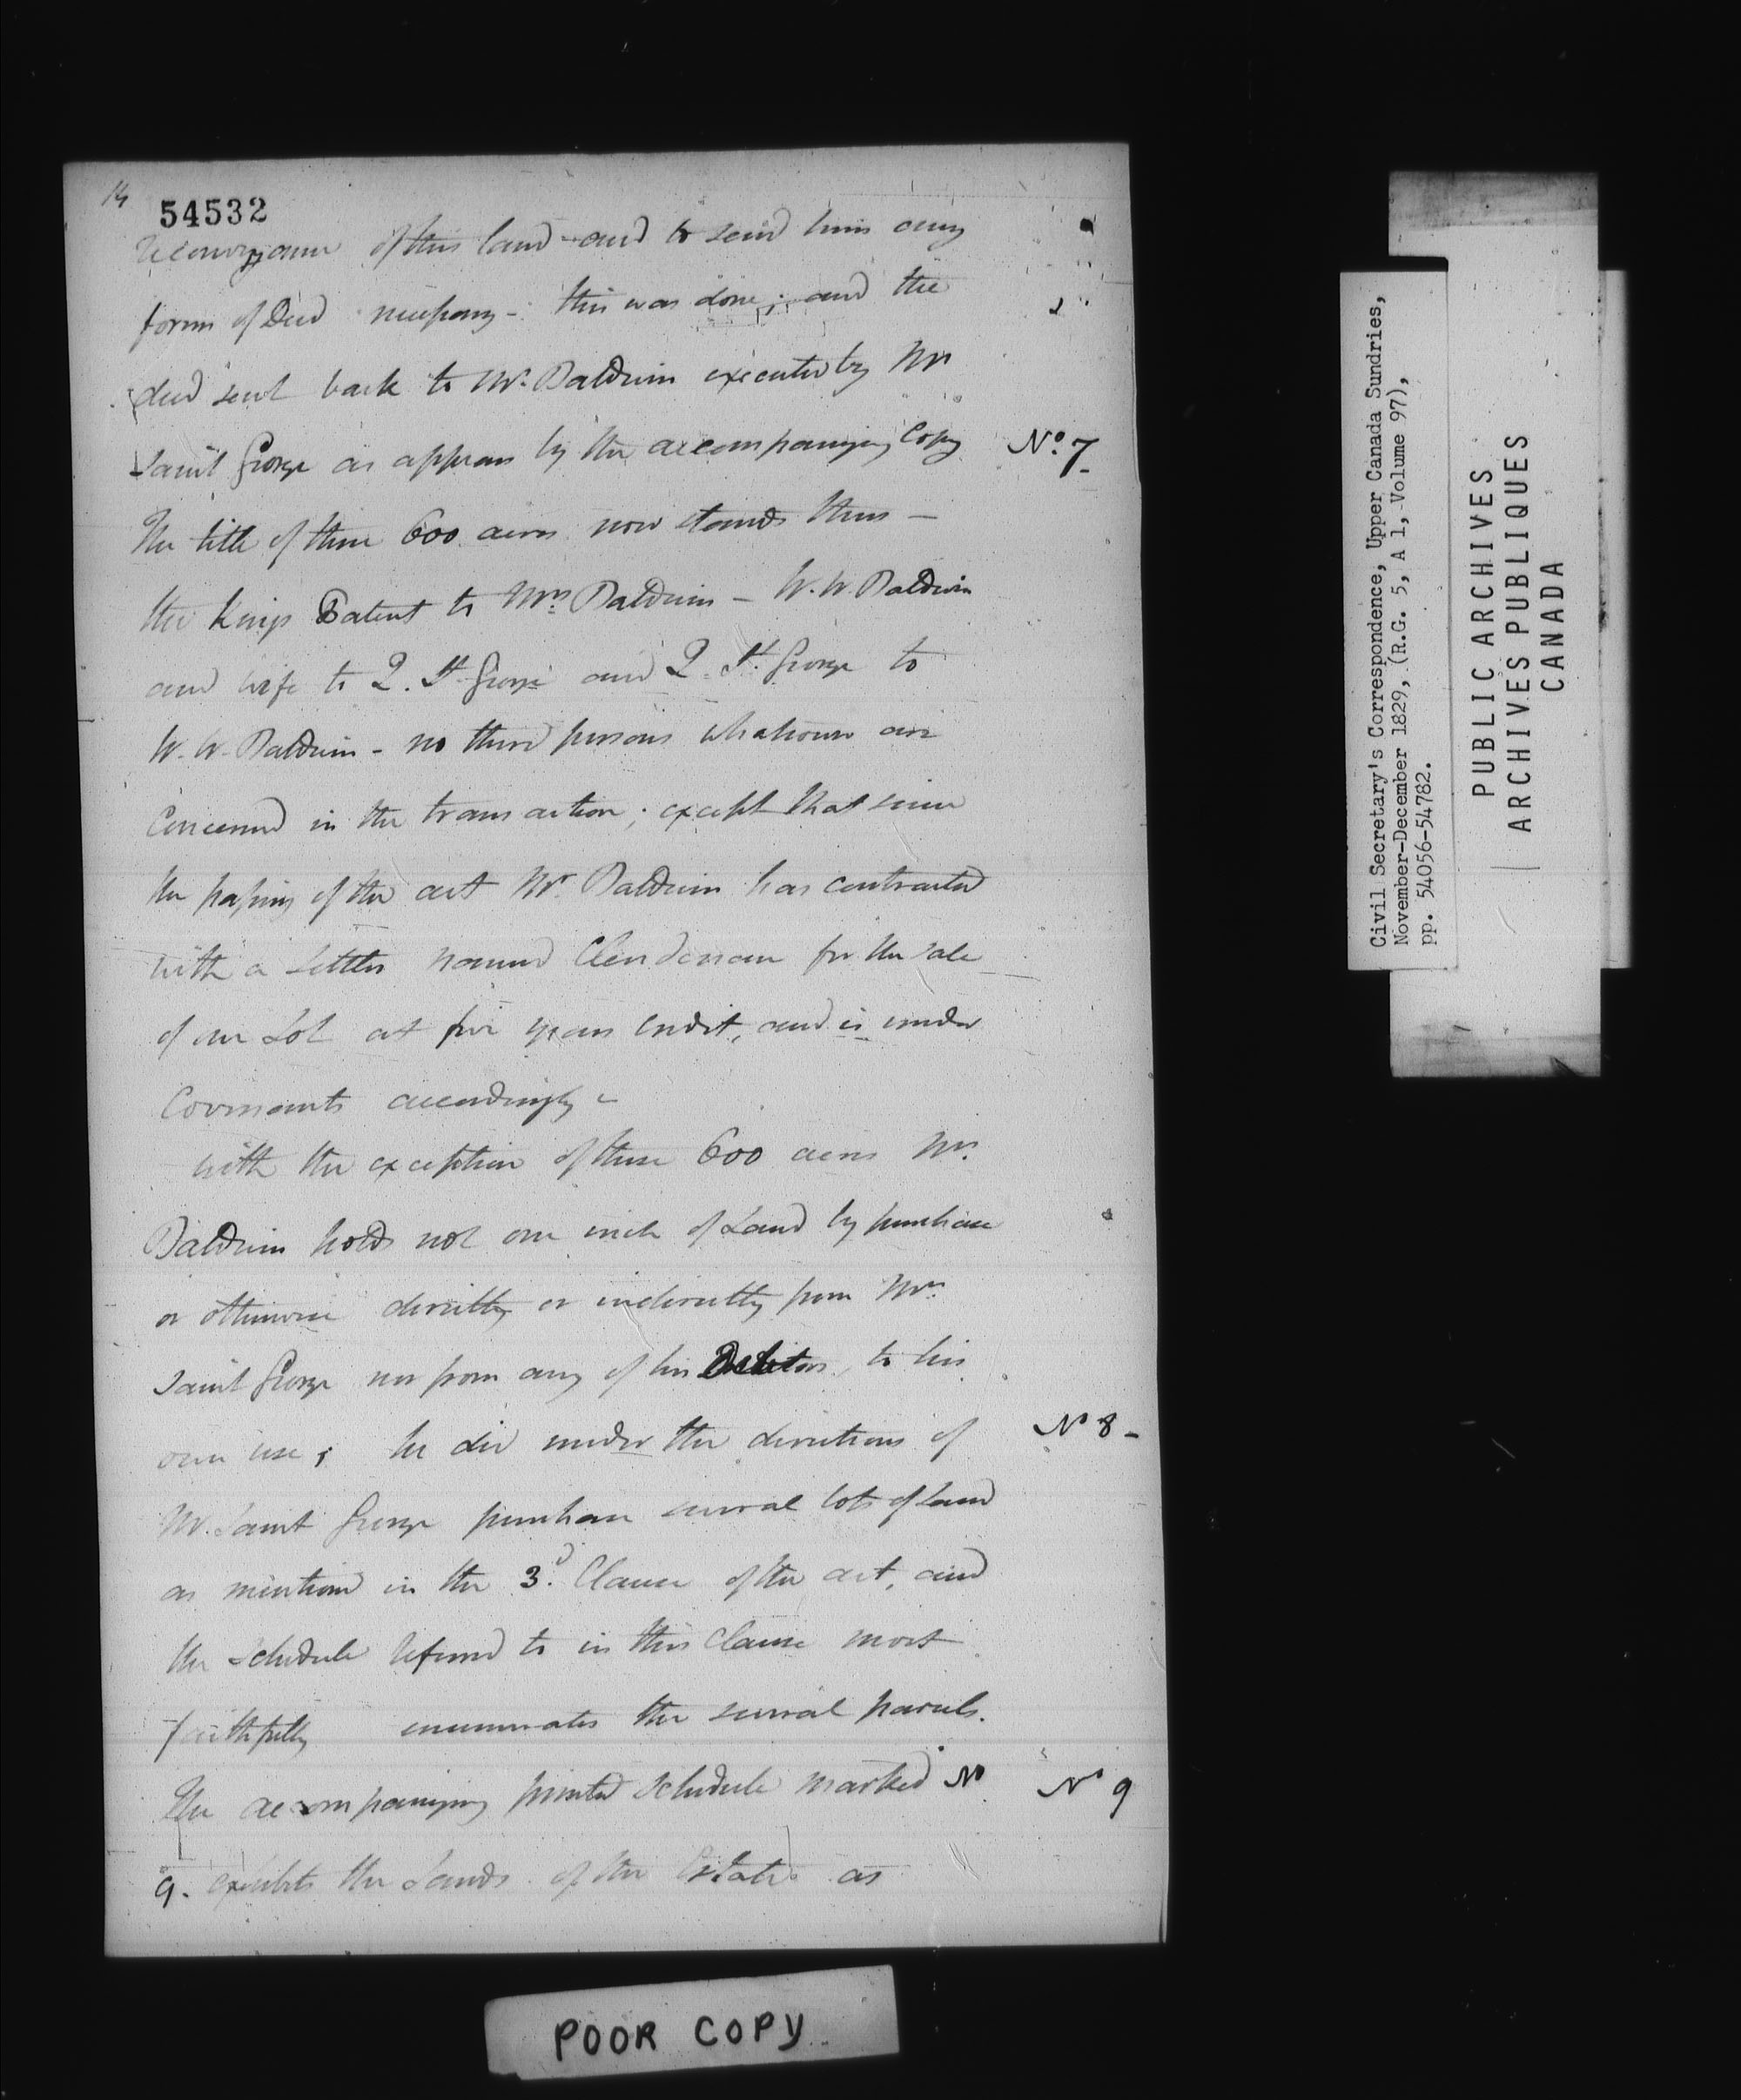 14
54532
reconveyance of this land - and to send him any
form of Deed necessary - this was done; and the
deed sent back to Mr. Baldwin executed by Mr
Saint George as appears by the accompanying Copy
No. 7
The title of these 600 acres now stands thus -
the Kings Patent to Mrs Baldwin - W. W. Baldwin
and wife to Q. St George and Q. St. George to
W. W. Baldwin - no third persons whatsoever are
Concerned in the transaction; except that since
the passing of the act Mr Baldwin has contracted
with a settler named Clendenan for the sale
of one Lot at five years credit, and is under
Covenants accordingly -
with the exception of these 600 acres Mr.
Baldwin holds not one inch of Land by purchase
or otherwise directly or indirectly from Mr.
Saint George nor from any of his Debtors, to his
own use; he did under the directions of
No 8 -
Mr. Saint George purchase several lots of Land
as mentioned in the 3d. Clause of the act, and
the schedule referred to in this Clause most
faithfully enumerates the several parcels.
The accompanying printed schedule marked No
No 9
9. exhibits the Lands of the Estate as
POOR COPY
Civil Secretary's Correspondence, Upper Canada Sundries,
November-December 1829, (R.G. 5, A 1, Volume 97),
pp. 54056-54782.
PUBLIC ARCHIVES
ARCHIVES PUBLIQUES
CANADA